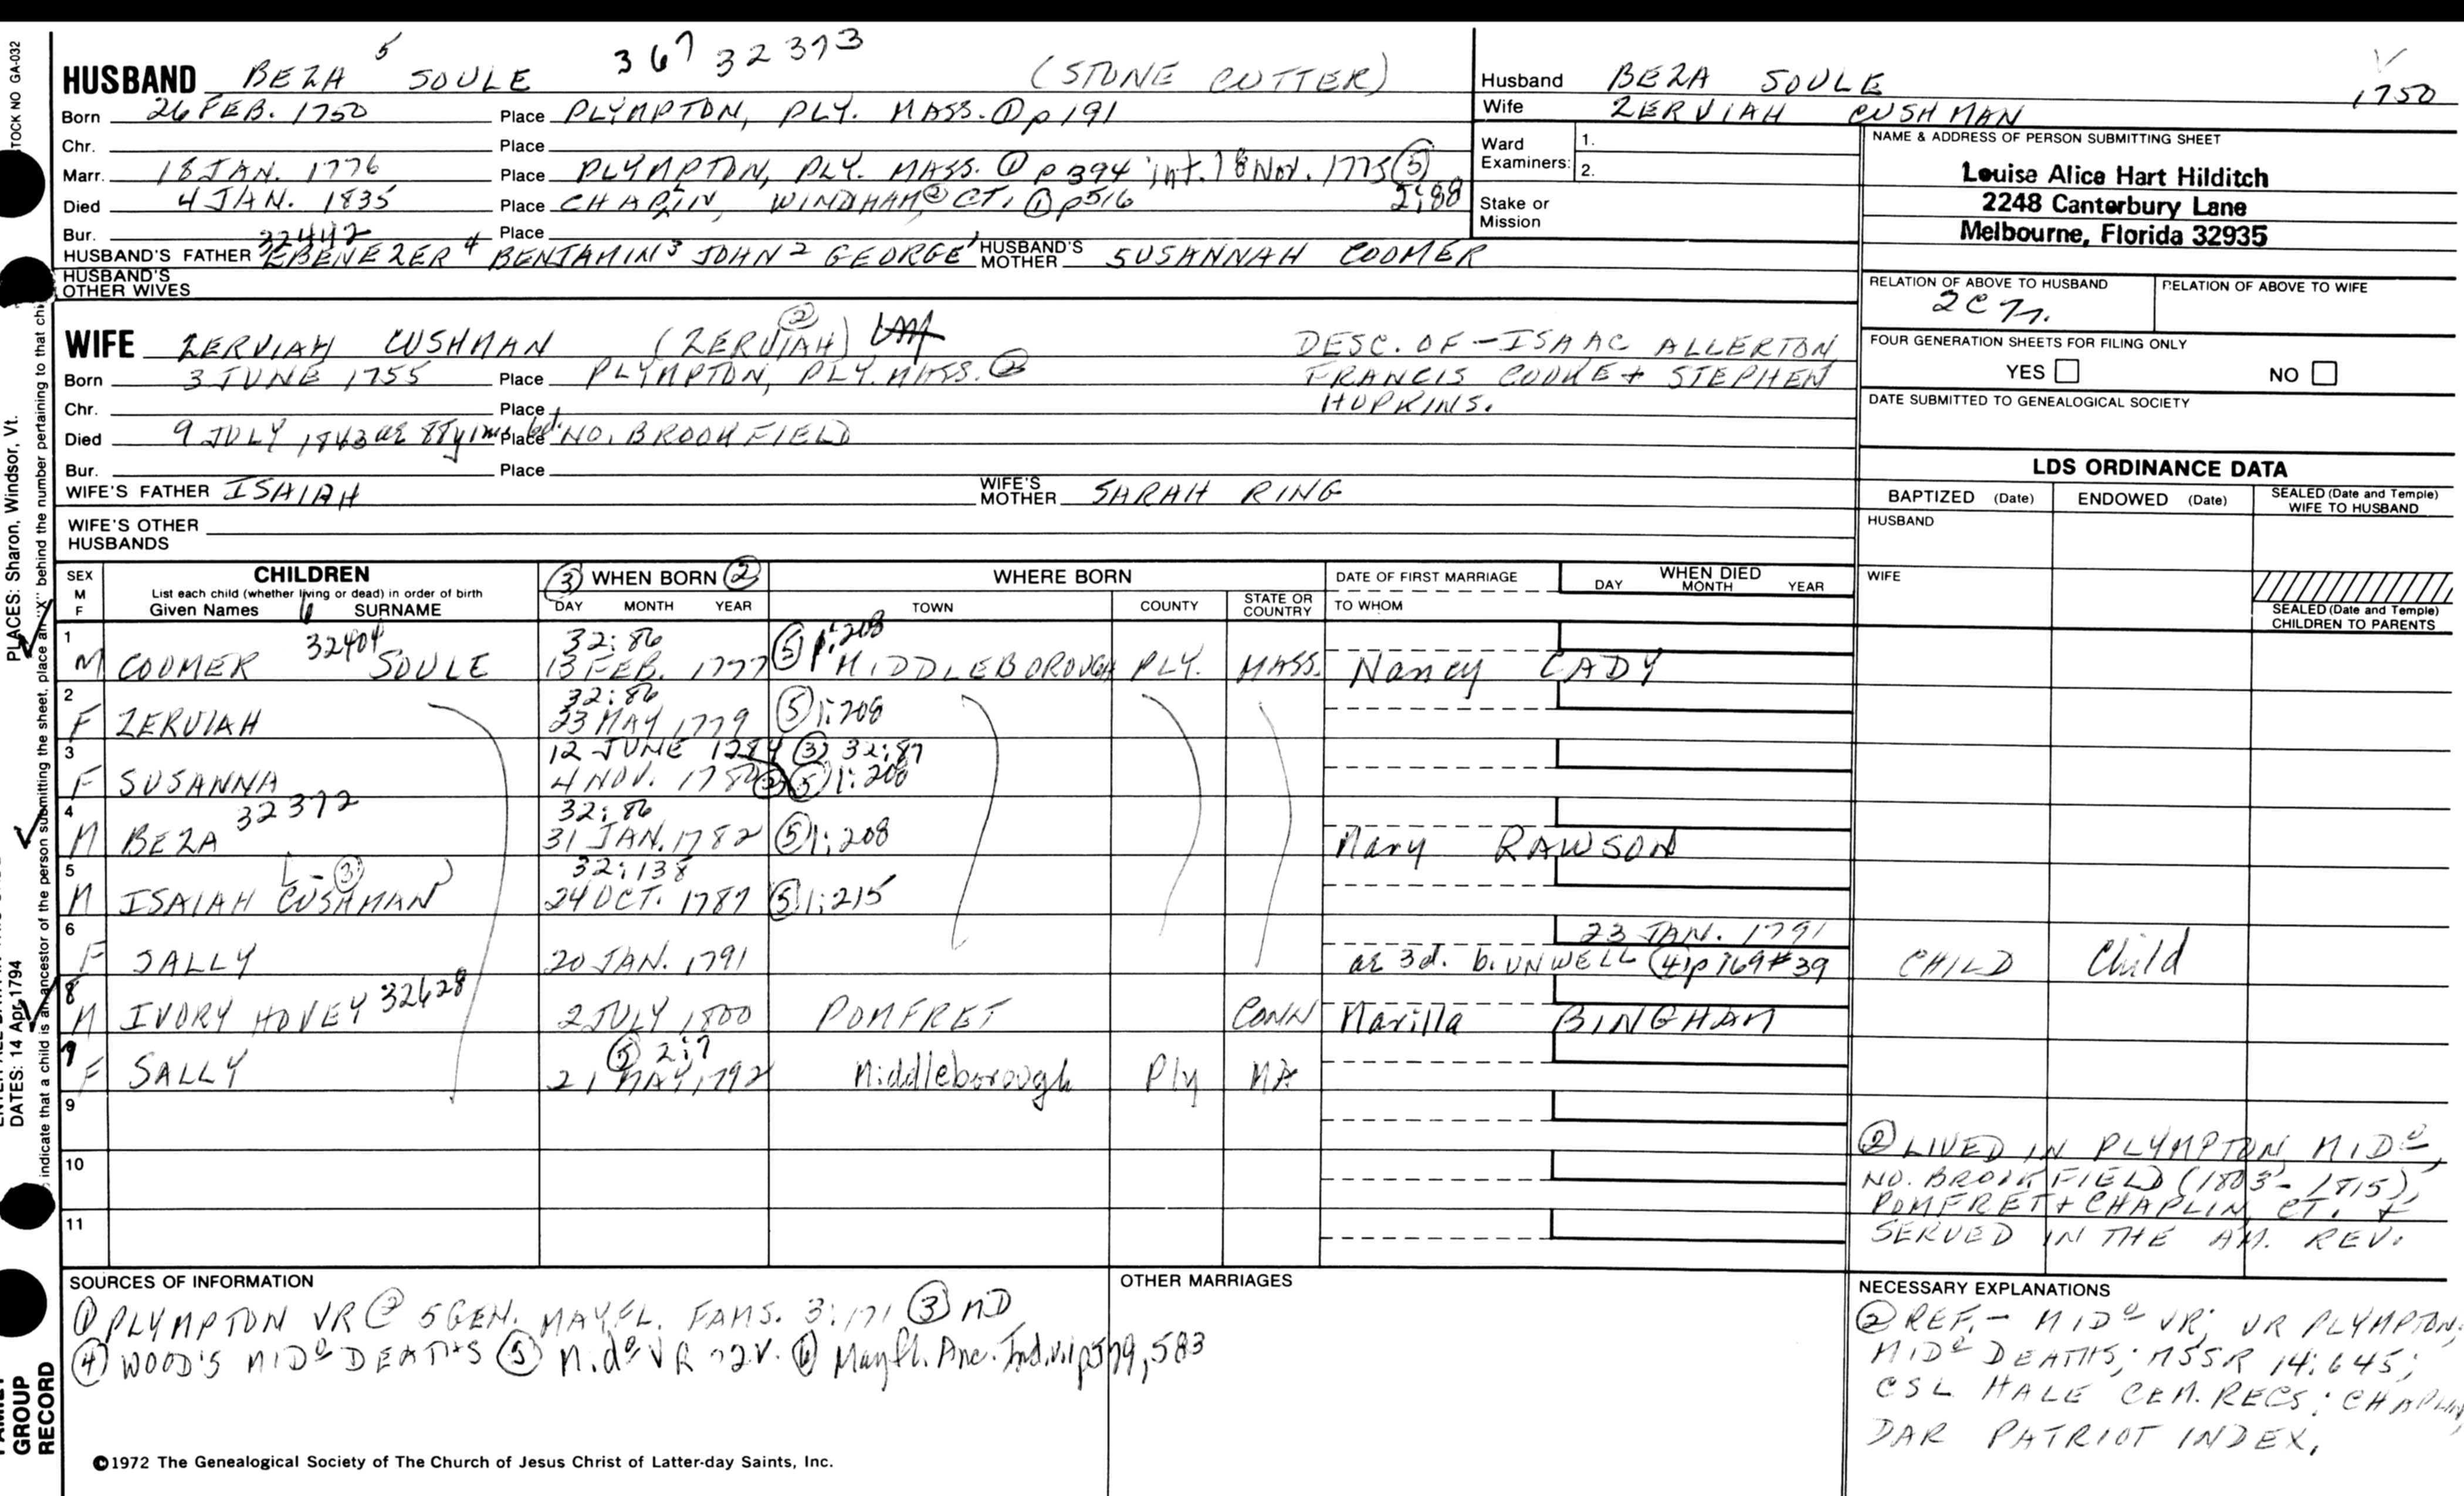 HUSBAND BEZA 5 SOULE 367 32373 (STONE CUTTER)
Born 26 FEB. 1750 Place PLYMPTON, PLY. MASS. ① p 191
Chr. Place
Marr. 18 JAN. 1776 Place PLYMPTON, PLY. MASS. ① p 394 int. 18 Nov. 1775 ⑤ 2:88
Died 4 JAN. 1835 Place CHAPLIN, WINDHAM ② CT. ① p 516
Bur. Place
32442
HUSBAND'S FATHER EBENEZER 4 BENJAMIN 3 JOHN 2 GEORGE 1 HUSBAND'S MOTHER SUSANNAH COOMER
HUSBAND'S OTHER WIVES
Husband BEZA SOULE 1750
Wife ZERVIAH CUSHMAN
Ward Examiners: 1. 2.
Stake or Mission
NAME & ADDRESS OF PERSON SUBMITTING SHEET
Louise Alice Hart Hilditch
2248 Canterbury Lane
Melbourne, Florida 32935
RELATION OF ABOVE TO HUSBAND RELATION OF ABOVE TO WIFE
FOUR GENERATION SHEETS FOR FILING ONLY
YES NO
DATE SUBMITTED TO GENEALOGICAL SOCIETY
WIFE ZERVIAH CUSHMAN (ZERUIAH) ②
DESC. OF - ISAAC ALLERTON
FRANCIS COOKE + STEPHEN
HOPKINS.
Born 3 JUNE 1755 Place PLYMPTON, PLY. MASS. ②
Chr. Place
Died 9 JULY 1843 ae 88y 1m Place NO. BROOKFIELD
Bur. Place
WIFE'S FATHER ISAIAH WIFE'S MOTHER SARAH RING
WIFE'S OTHER HUSBANDS
LDS ORDINANCE DATA
BAPTIZED (Date) ENDOWED (Date) SEALED (Date and Temple) WIFE TO HUSBAND
HUSBAND
WIFE
SEALED (Date and Temple) CHILDREN TO PARENTS
SEX M F
CHILDREN
List each child (whether living or dead) in order of birth
Given Names SURNAME
③ WHEN BORN ②
DAY MONTH YEAR
WHERE BORN
TOWN COUNTY STATE OR COUNTRY
DATE OF FIRST MARRIAGE
TO WHOM
WHEN DIED
DAY MONTH YEAR
1 M COOMER 32404 SOULE 32:86 13 FEB. 1777 ⑤ 1:208 MIDDLEBOROUGH PLY. MASS. Nancy CADY
2 F ZERUIAH 32:86 23 MAY 1779 ⑤ 1:208
3 F SUSANNA 12 JUNE 1784 ③ 32:87
4 NOV. 1780 ⑤ 1:208
4 M BEZA 32372 32:86 31 JAN. 1782 ⑤ 1:208 Mary RAWSON
5 M ISAIAH CUSHMAN ③ 32:138 24 OCT. 1787 ⑤ 1:215
6 F SALLY 20 JAN. 1791 23 JAN. 1791
ae 3d. b. UNWELL ④ p 169 #39 CHILD Child
8 M IVORY HOVEY 32628 2 JULY 1800 POMFRET CONN Marilla BINGHAM
F SALLY ⑤ 2:7 21 MAY 1792 Middleborough Ply MA
9
10
11
② LIVED IN PLYMPTON, MIDº,
NO. BROOKFIELD (1803 - 1815),
POMFRET + CHAPLIN, CT. +
SERVED IN THE AM. REV.
SOURCES OF INFORMATION
① PLYMPTON VR ② 5 GEN. MAYFL. FAMS. 3:171 ③ MD
④ WOOD'S MIDº DEATHS ⑤ Midº VR 2v. ⑥ Mayfl. Anc. Ind. 579, 583
OTHER MARRIAGES
NECESSARY EXPLANATIONS
② REF. - MIDº VR; VR PLYMPTON;
MIDº DEATHS; MSSR 14:645;
CSL HALE CEM. RECS: CHAPLIN,
DAR PATRIOT INDEX.
©1972 The Genealogical Society of The Church of Jesus Christ of Latter-day Saints, Inc.
STOCK NO GA-032
PLACES: Sharon, Windsor, Vt.
DATES: 14 Apr 1794
indicate that a child is an ancestor of the person submitting the sheet, place an "X" behind the number pertaining to that chi
FAMILY GROUP RECORD